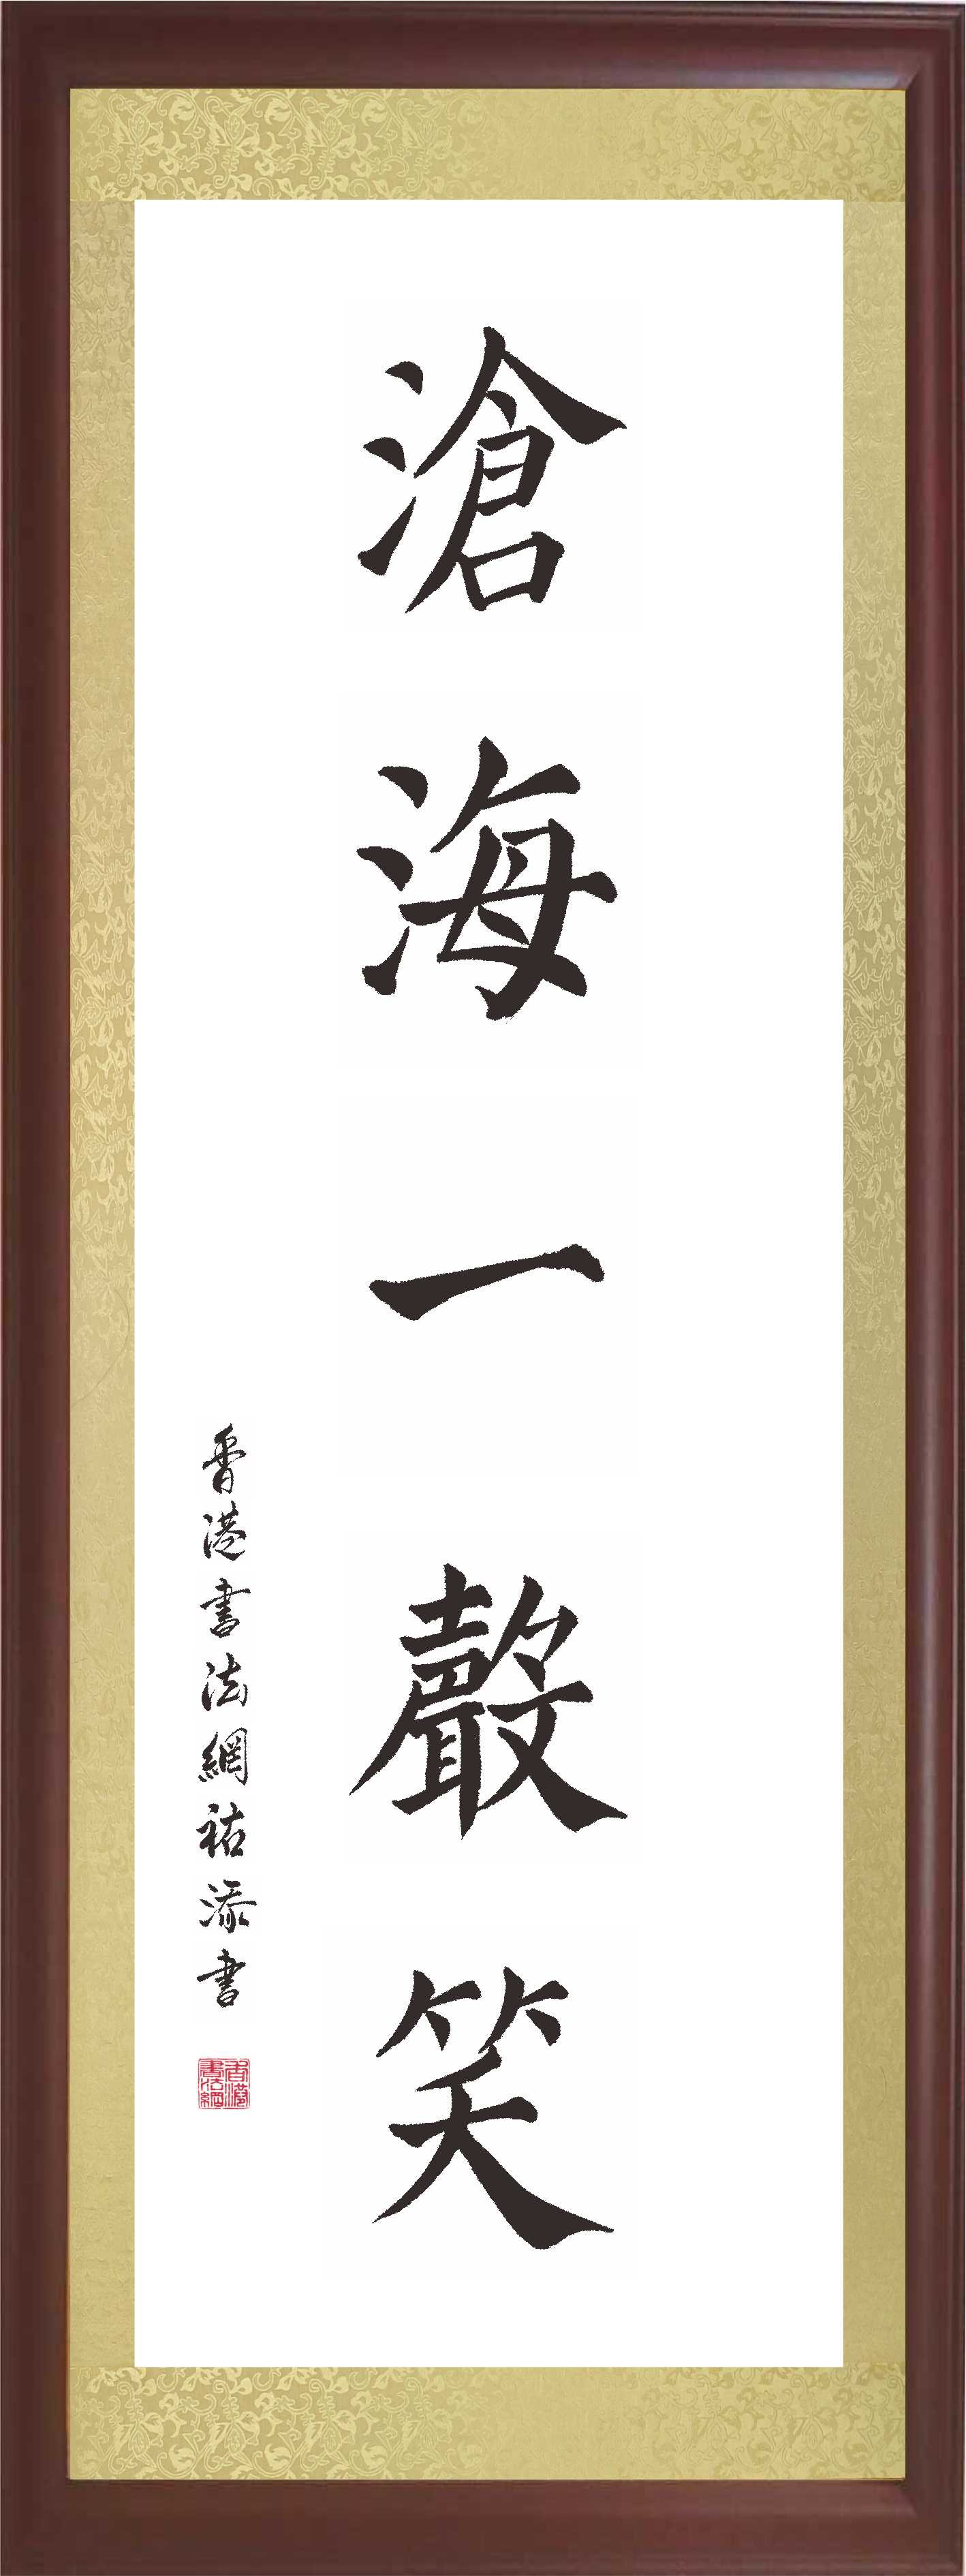 滄海一聲笑
香港書法網祐添書
香港書法網